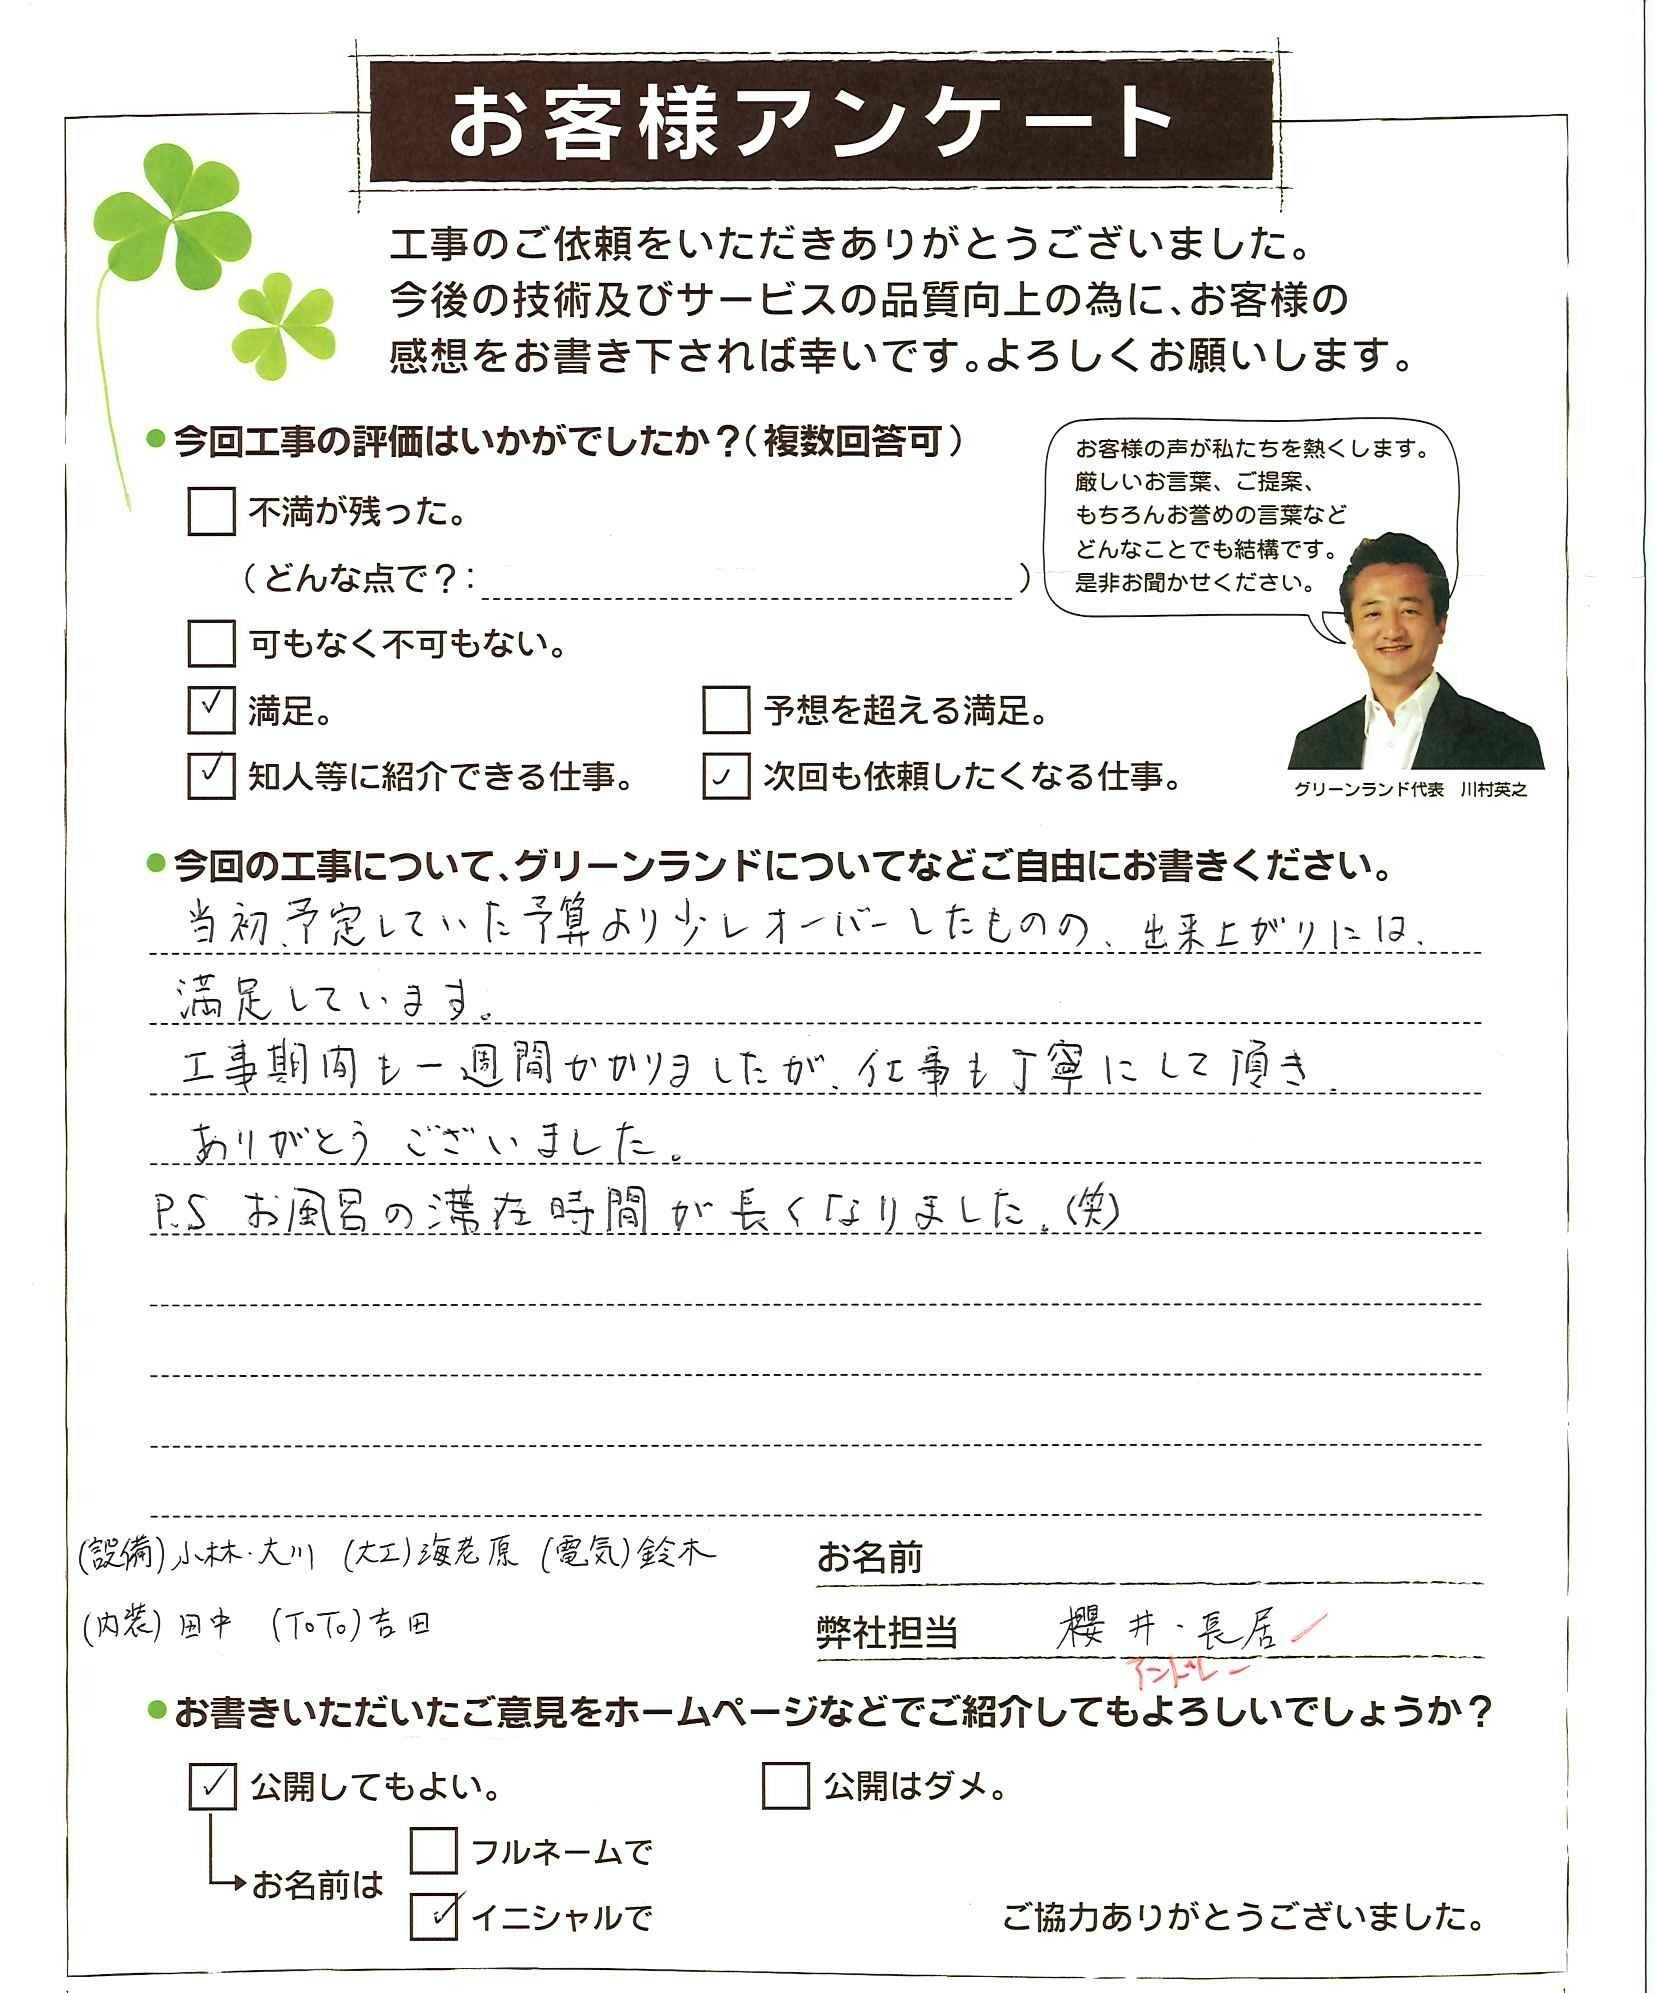 お客様アンケート
工事のご依頼をいただきありがとうございました。
今後の技術及びサービスの品質向上の為に、お客様の
感想をお書き下されば幸いです。よろしくお願いします。
●今回工事の評価はいかがでしたか？（複数回答可）
お客様の声が私たちを熱くします。
厳しいお言葉、ご提案、
もちろんお誉めの言葉など
どんなことでも結構です。
是非お聞かせください。
□ 不満が残った。
（どんな点で？：　）
□ 可もなく不可もない。
☑ 満足。 □ 予想を超える満足。
☑ 知人等に紹介できる仕事。 ☑ 次回も依頼したくなる仕事。
グリーンランド代表　川村英之
●今回の工事について、グリーンランドについてなどご自由にお書きください。
当初、予定していた予算より少しオーバーしたものの、出来上がりには、
満足しています。
工事期間も一週間かかりましたが、仕事も丁寧にして頂き、
ありがとうございました。
P.S お風呂の滞在時間が長くなりました。(笑)
(設備)小林・大川 (大工)海老原 (電気)鈴木
(内装)田中 (TOTO)吉田
お名前
弊社担当 櫻井・長居
アンドレー
●お書きいただいたご意見をホームページなどでご紹介してもよろしいでしょうか？
☑ 公開してもよい。 □ 公開はダメ。
お名前は □ フルネームで
☑ イニシャルで
ご協力ありがとうございました。